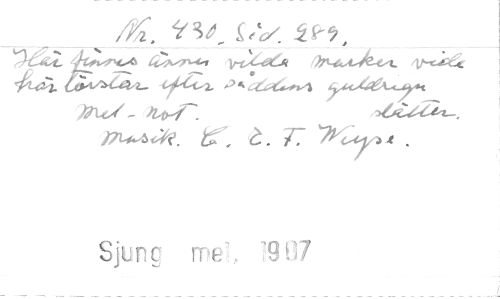 Nr. 430. Sid. 289.
Här finnes ännu vilda marker vida
här törstar efter såddens guldregn
Mel-not. slätter.
Musik. C. E. F. Weyse.
Sjung mel, 1907